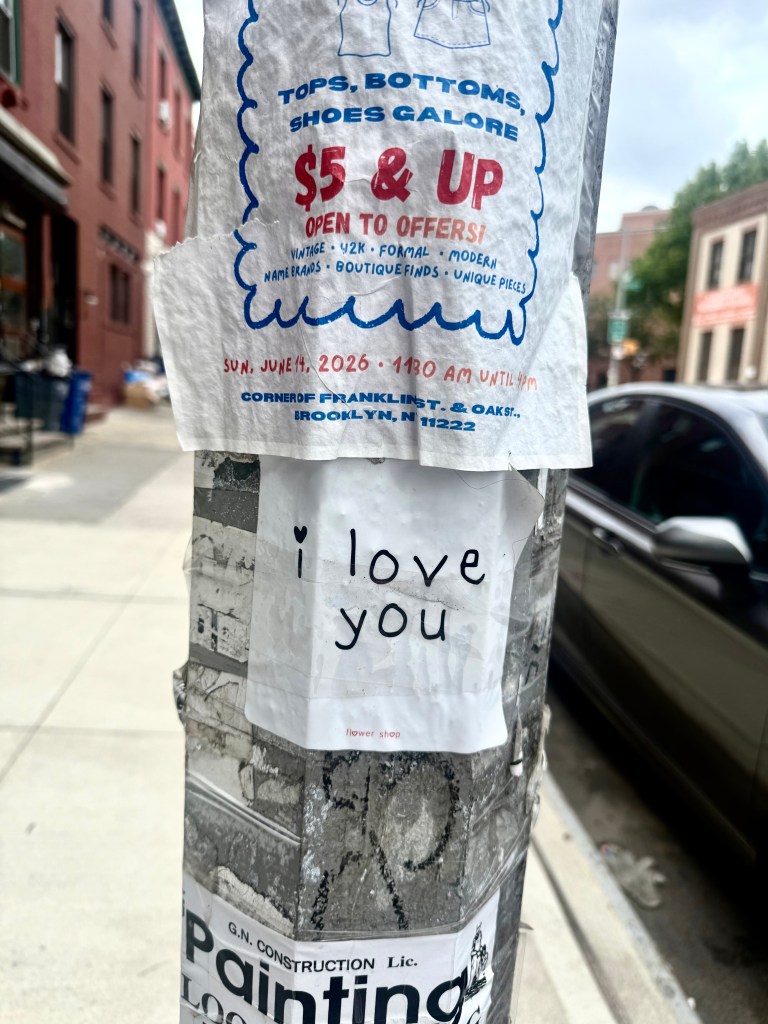 TOPS, BOTTOMS,
SHOES GALORE
$5 & UP
OPEN TO OFFERS!
VINTAGE • Y2K • FORMAL • MODERN
NAME BRANDS • BOUTIQUE FINDS • UNIQUE PIECES
SUN, JUNE 14, 2026 • 1130 AM UNTIL 4PM
CORNER OF FRANKLIN ST. & OAK ST.,
BROOKLYN, N 11222
i love
you
flower shop
G.N. CONSTRUCTION Lic.
Painting